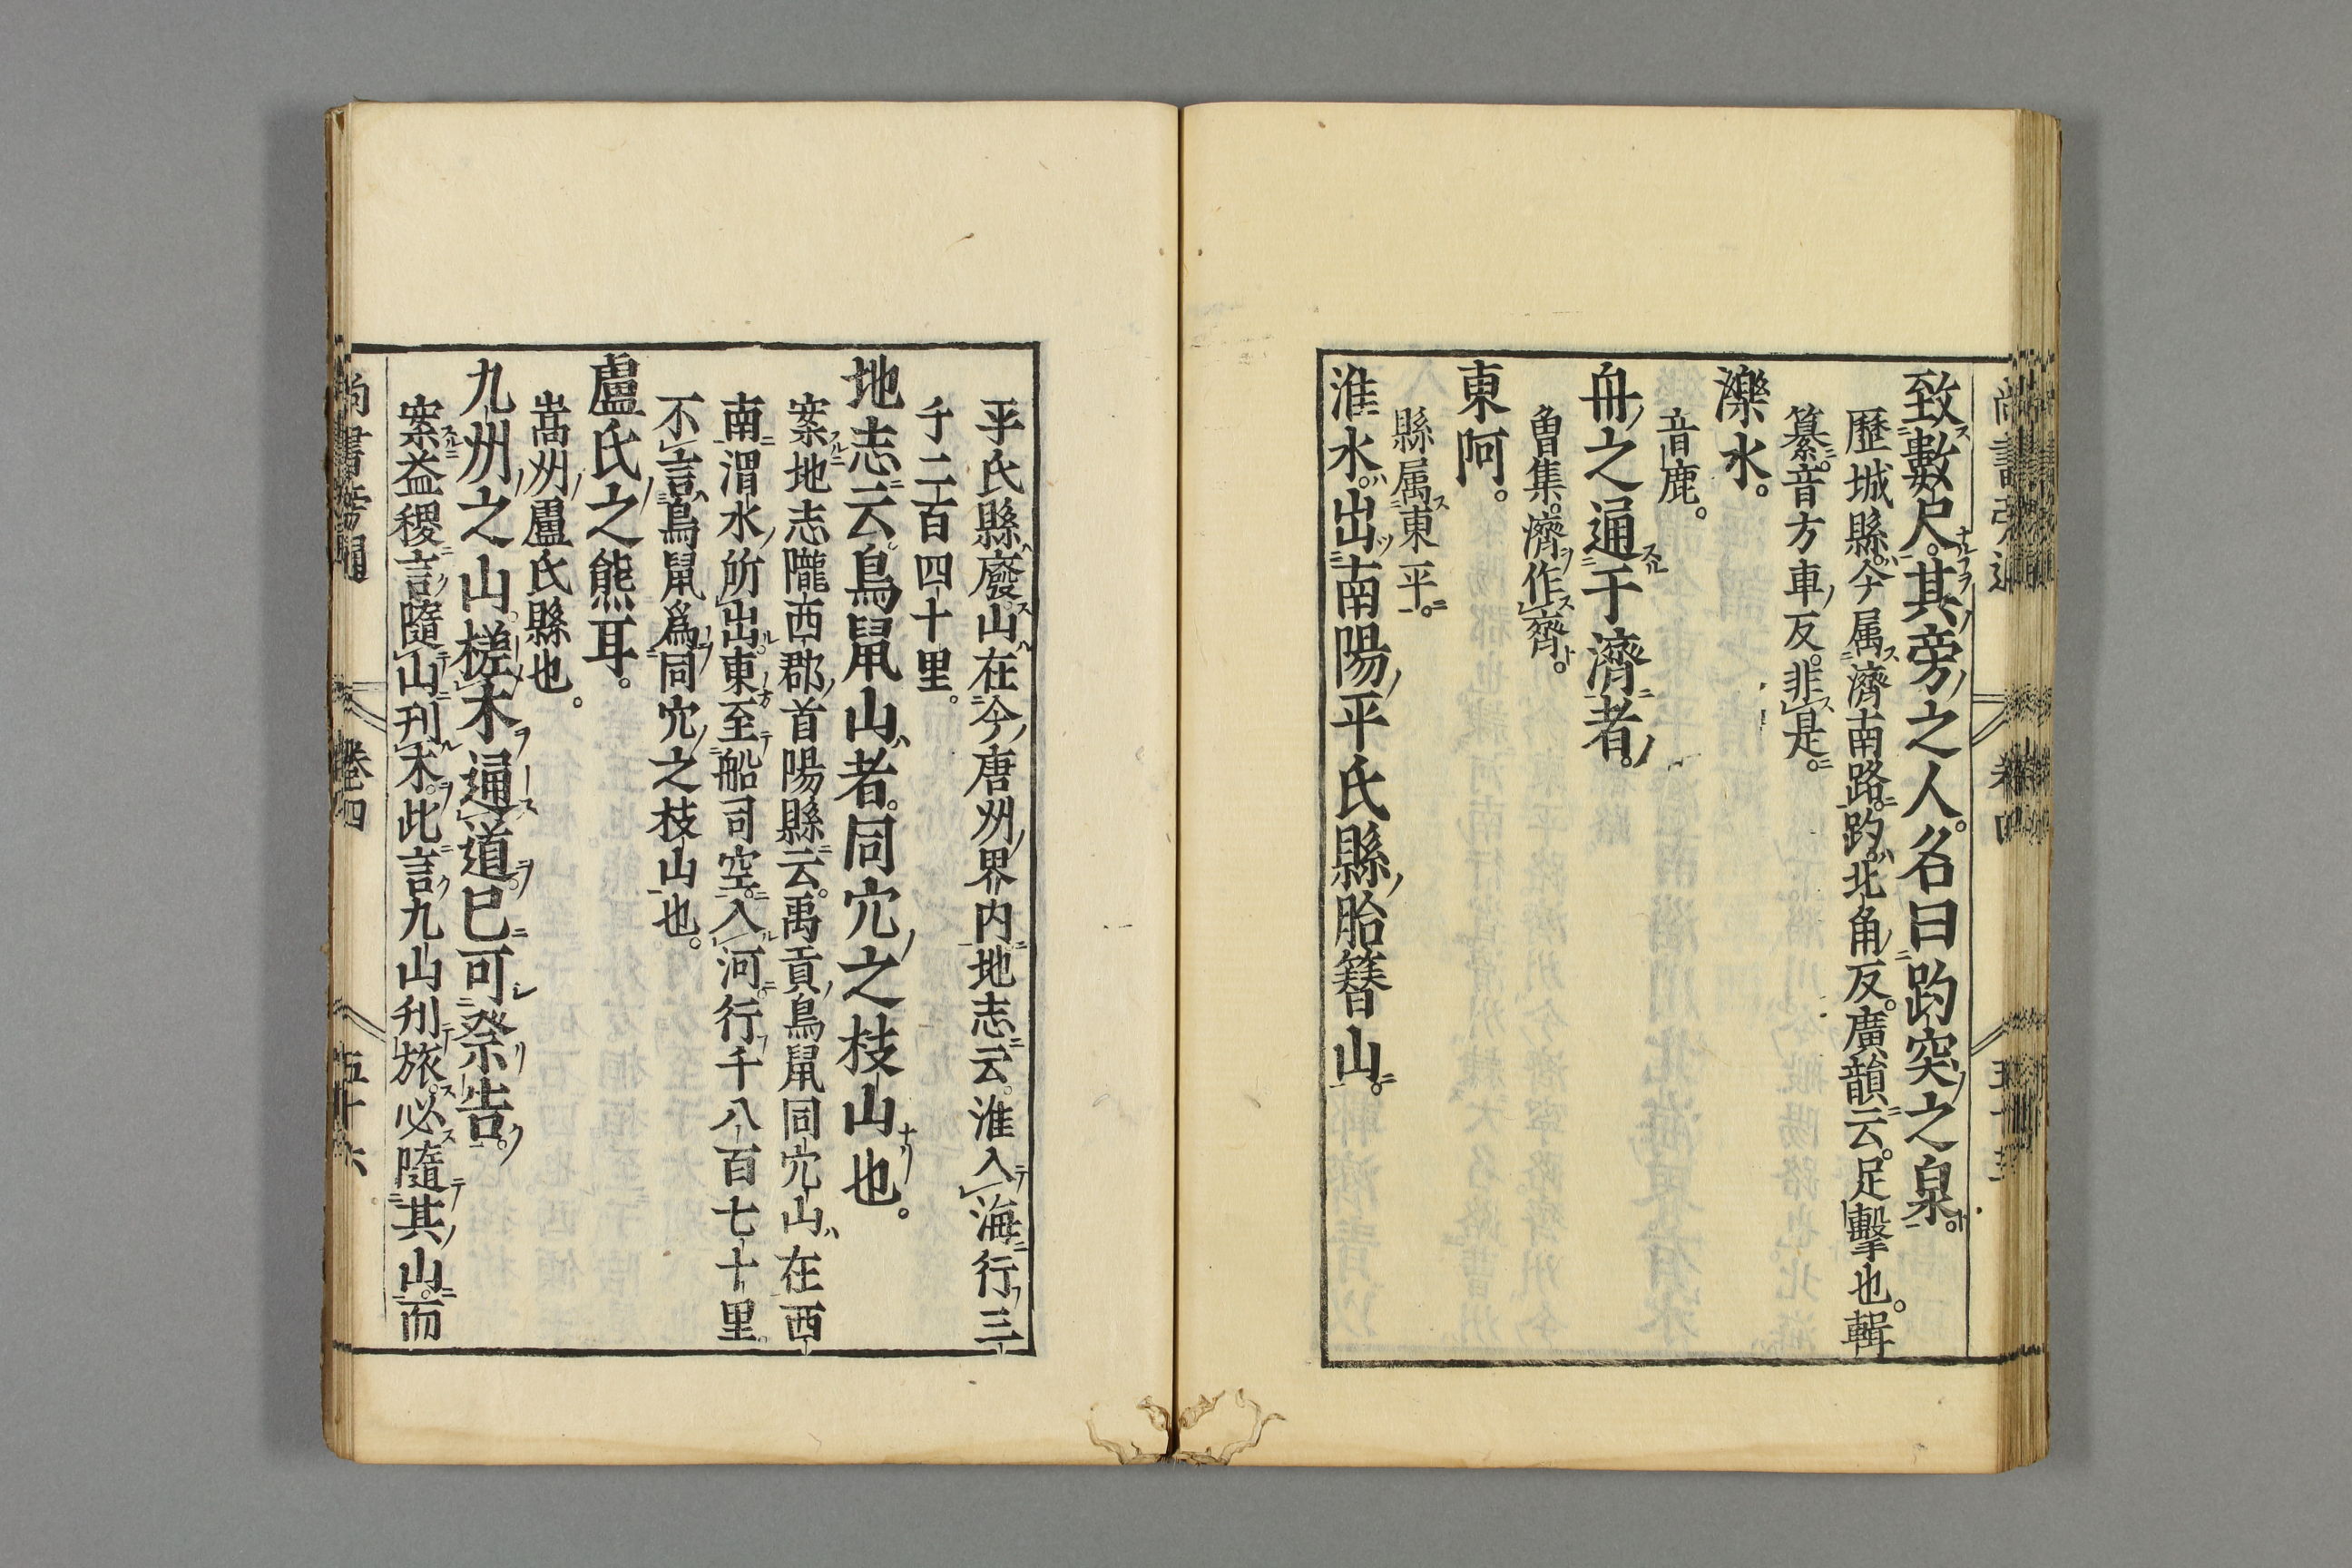 致數尺。其旁之人。名曰趵突之泉。
歷城縣。今属濟南路。趵。北角反。廣韻云。足擊也。輯
纂。音方車反。非是。
濼水。
音鹿。
舟之通于濟者。
曾集。濟作齊。
東阿。
縣属東平。
淮水。出南陽平氏縣胎簪山。
平氏縣廢。山在今唐州界内。地志云。淮入海行三
千二百四十里。
地志云。鳥鼠山者。同穴之枝山也。
案地志隴西郡首陽縣云。禹貢鳥鼠同穴山。在西
南。渭水所出。東至船司空。入河。行千八百七十里。
不言鳥鼠爲同穴之枝山也。
盧氏之熊耳。
嵩州盧氏縣也。
九州之山。槎木通道。已可祭告。
案益稷言隨山刊木。此言九山刊旅。必隨其山。而
尚書旁通 卷四 五十六